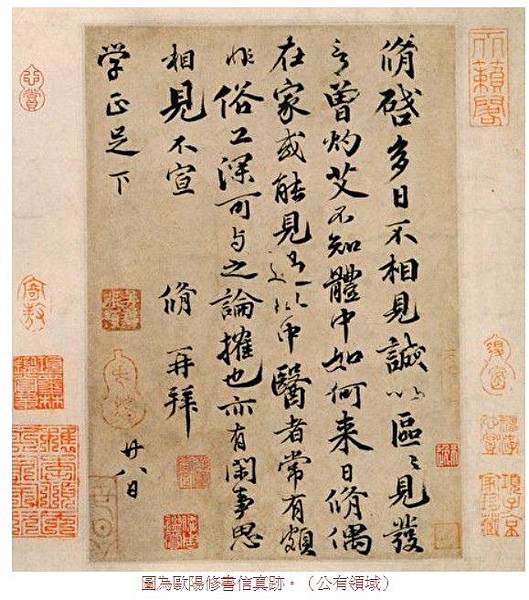 脩啓多日不相見誠以區〻見發
言曾灼艾不知體中如何来日脩偶
在家或能見過此中醫者常有頗
非俗工深可与之論搉也亦有閑事思
相見不宣 脩再拜 廿八日
学正足下
天籟閣
項子京家珍藏
心賞
圖為歐陽修書信真跡。（公有領域）